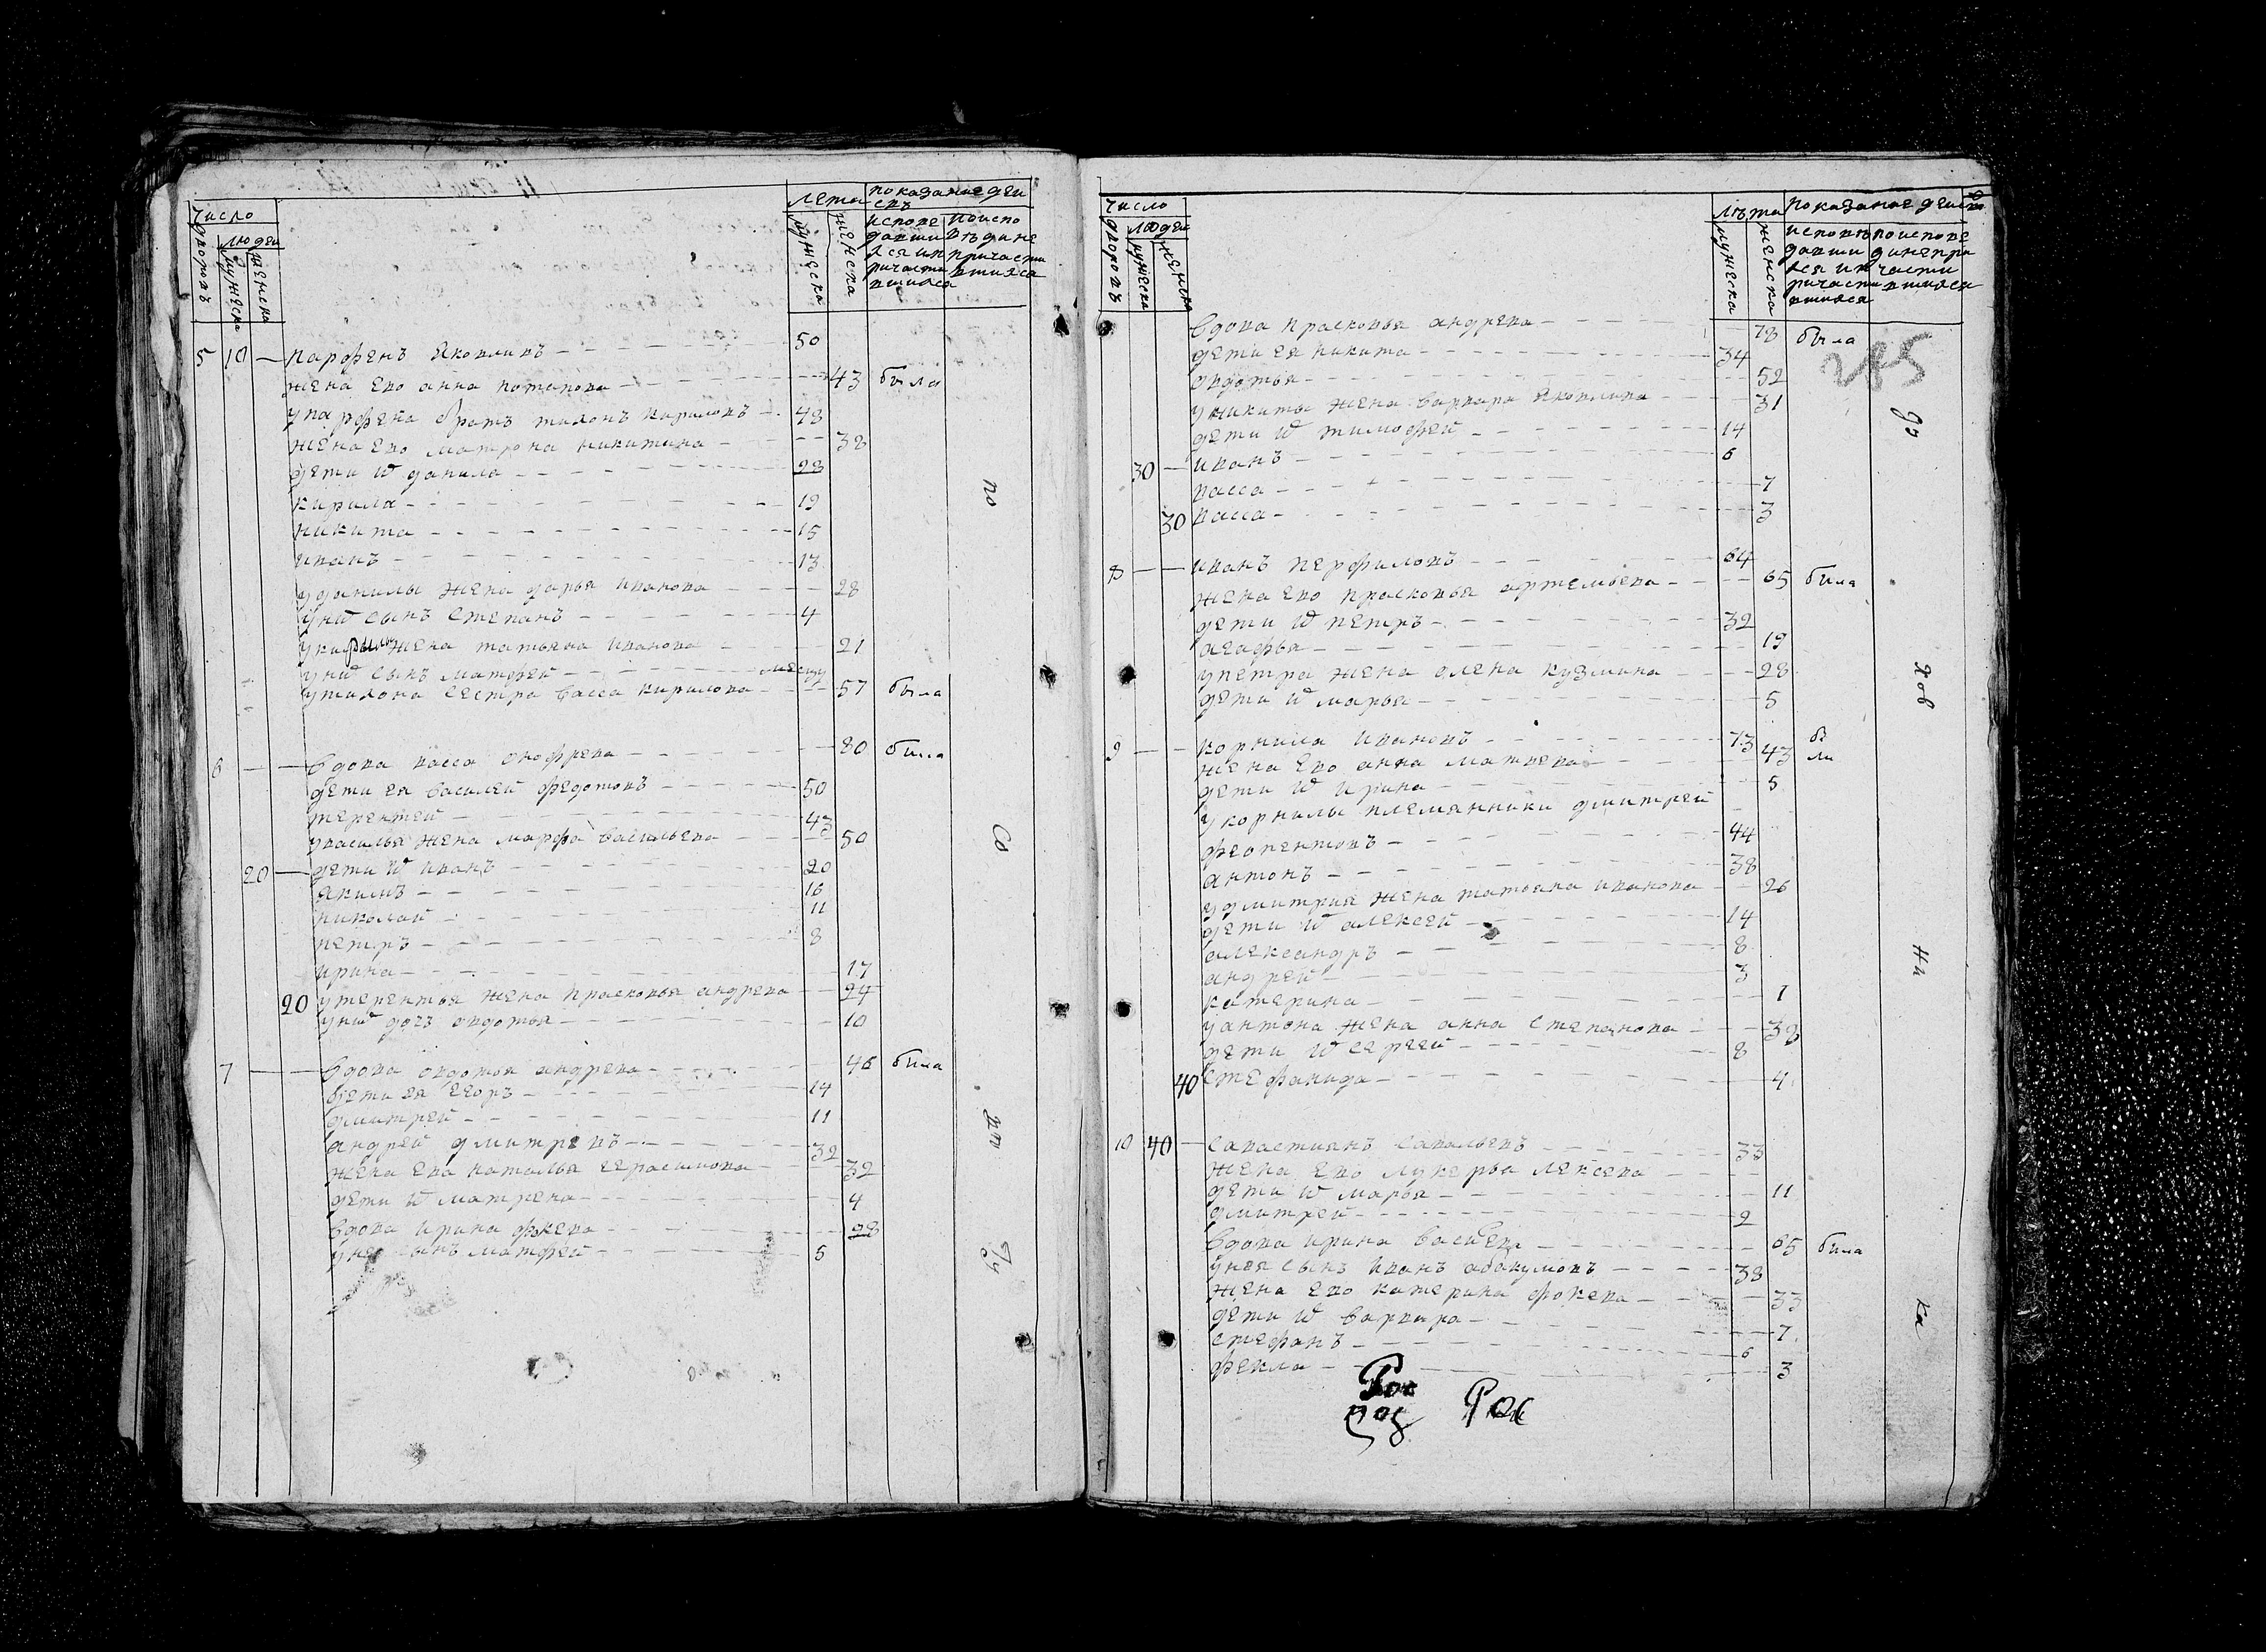 число
лета
показание дей
ствъ
дворовъ
людей
мужеска
женска
мужеска
женска
исповедавшиися и причастившися
по исповѣди не причастившися
5 10 — парфенъ яковливъ — 50
жена ево анна потапова — 43 была
у парфена братъ тихонъ кириловъ — 48
жена ево матрона никитина — 38
дети ѿ данила — 28
кирила — 19
никита — 15
иванъ — 13
у данилы жена дарья иванова — 28
у них сынъ степанъ — 4
у кирилы жена татьяна иванова — 21
у них сынъ матфей —
у тихона сестра васса кирилова — 57 была
6 — — вдова васса онофрева — 80 была
дети ея василей федотовъ — 50
терентей — 43
у василья жена марфа васильева — 50
20 — дети ѿ иванъ — 20
якимъ — 16
николай — 11
петръ — 8
ирина — 17
20 у терентья жена прасковья андрева — 24
у них дочь овдотья — 10
7 — вдова овдотья андрева — 46 была
дети ея егоръ — 14
дмитрей — 11
андрей дмитревъ — 32
жена ево наталья герасимова — 32
дети ѿ матрена — 4
вдова ирина фокева — 28
у нее сынъ матфей — 5
по
со
вт
число
лѣта
показание дейст
дворовъ
людей
мужеска
женска
мужеска
женска
вдова прасковья андрева — 78 была
285
дети ея никита — 34
овдотья — 52
у никиты жена варвара яковлива — 31
дети ѿ тимофей — 14
30 — иванъ — 6
васса — 7
30 васса — 3
8 — — иванъ перфиловъ — 64
жена ево прасковья артемьева — 65 была
дети ѿ петръ — 32
агафья — 19
у петра жена олена кузмина — 28
дети ѿ марья — 5
9 — — корнила ивановъ — 73 бы
жена ево анна матвева — 43 ли
дети ѿ ирина — 5
у корнилы племянники дмитрей
феопентовъ — 44
антонъ — 38
у дмитрия жена татьяна иванова — 26
дети ѿ алексей — 14
александръ — 8
андрей — 3
катерина — 1
у антона жена анна степанова — 32
дети ѿ сергей — 8
40 стефанида — 4
10 40 — савастиянъ савальевъ — 33
жена ево лукерья лексева —
дети ѿ марья — 11
дмитрей — 2
вдова ирина васильева — 65 была
у нея сынъ иванъ абакумовъ — 38
жена ево катерина фокева — 33
дети ѿ варвара — 7
стефанъ — 6
фекла — 3
дь
яов
ни
ка